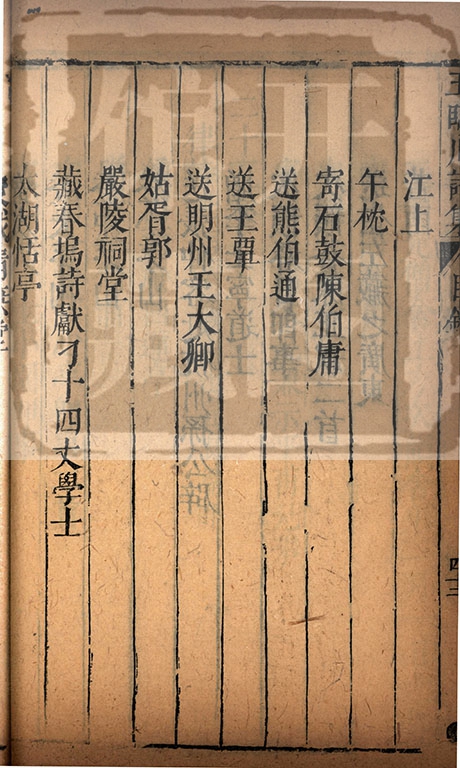 王臨川詩集 目錄
四十三
江上
午枕
寄石鼓陳伯庸
送熊伯通
送王覃
送明州王大卿
姑胥郭
嚴陵祠堂
藏春塢詩獻刁十四丈學士
太湖恬亭